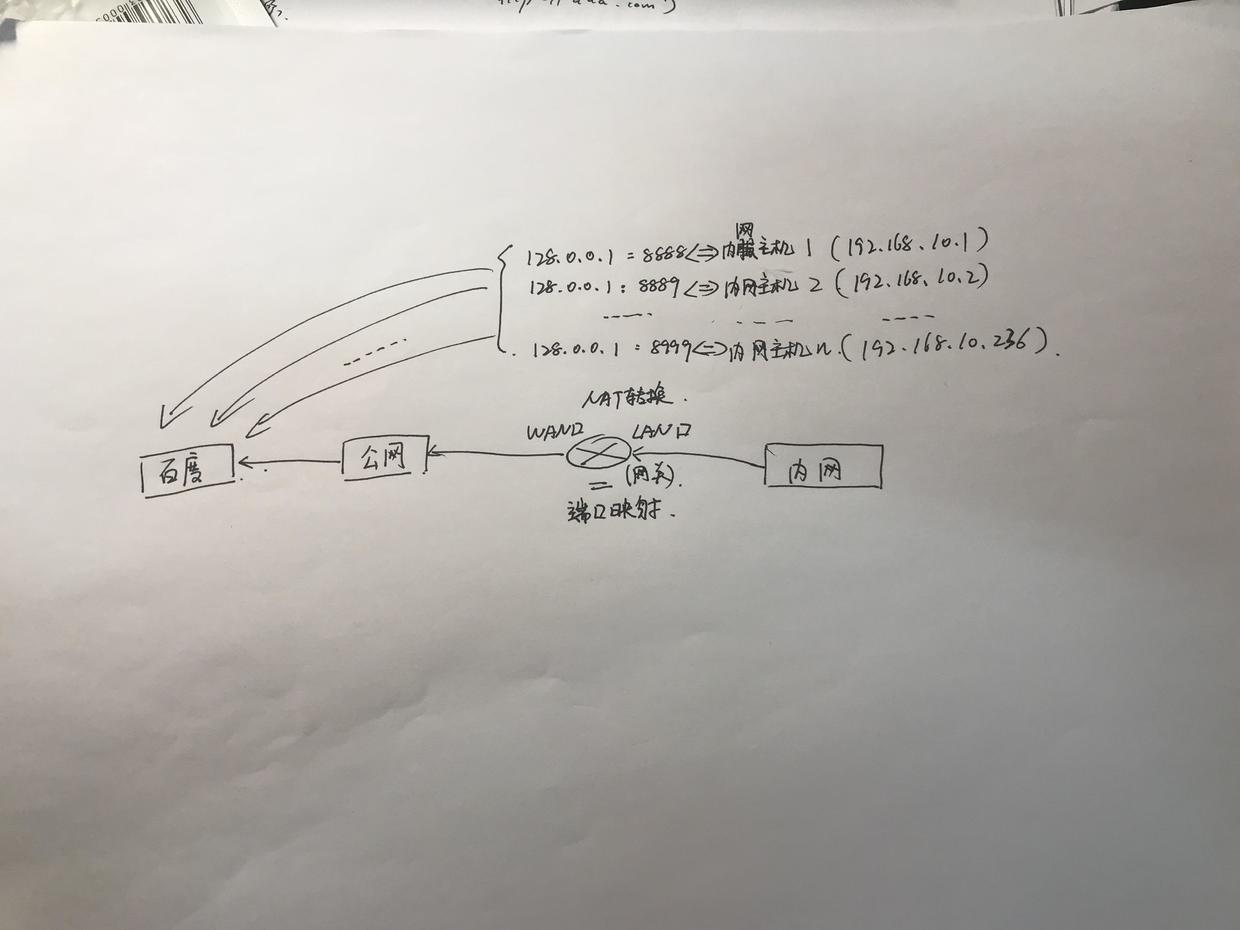 128.0.0.1:8888<=>内网主机 1 (192.168.10.1)
128.0.0.1:8889<=>内网主机 2 (192.168.10.2)
128.0.0.1:8999<=>内网主机n.(192.168.10.236).
NAT转换.
WAN口
LAN口
百度
公网
(网关).
内网
端口映射.